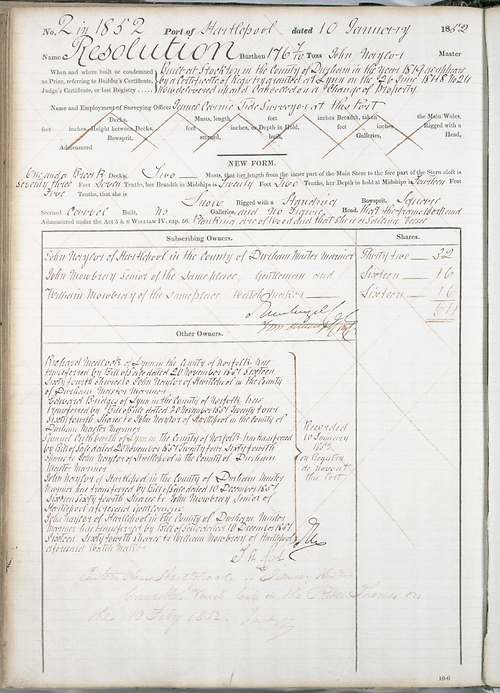 No. 2 in 1852 Port of Hartlepool dated 10 January 1852
Name Resolution Burthen 176 Tons John Naylor Master
When and where built or condemned Built at Stockton in the County of Durham in the Year 1819 as appears
as Prize, referring to Builder's Certificate, by a Certificate of Registry granted at Lynn in the 26 June 1848 No 24
Judge's Certificate, or last Registry Now delivered up and Cancelled on a Change of Property
Name and Employment of Surveying Officer James Side Surveyor at this Port
Decks, Masts, length feet inches, Breadth, taken the Main Wales,
feet inches, Height between Decks, feet inches, Depth in Hold, feet Rigged with a
Bowsprit, built, Galleries, Head,
Admeasured
NEW FORM.
One and a Decks, Two Masts, that her length from the inner part of the Main Stem to the fore part of the Stern aloft is
seventy three Feet Seven Tenths, her Breadth in Midships is Twenty Feet Two Tenths, her Depth in hold at Midships is Fourteen Feet
Five Tenths, that she is
Snow Rigged with a Standing Bowsprit, Square
Sterned Carvel Built, No Galleries, and No Figure Head that the framework and
Admeasured under the Act 5 & 6 WILLIAM IV. cap. 56. Planking are of Wood and that she is a Sailing Vessel
Subscribing Owners. Shares.
John Naylor of Hartlepool in the County of Durham Master Mariner Thirty two 32
John Mowbray Senior of the same place, Gentleman and Sixteen 16
William Mowbray of the same place Watch maker Sixteen 16
64
Other Owners.
Richard Medlock of Lynn in the County of Norfolk has
transferred by Bill of Sale dated 20 November 1851 Sixteen
Sixty fourth Shares to John Naylor of Hartlepool in the County
of Durham Master Mariner
Edward Bridges of Lynn in the County of Norfolk has
transferred by Bill of Sale dated 20 November 1851 Twenty four
Sixty fourth Shares to John Naylor of Hartlepool in the County of
Durham Master Mariner
Samuel Cuthbarth of Lynn in the County of Norfolk has transferred
by Bill of Sale dated 20 November 1851 Twenty four Sixty fourth
Shares to John Naylor of Hartlepool in the County of Durham
Master Mariner
John Naylor of Hartlepool in the County of Durham Master
Mariner has transferred by Bill of Sale dated 10 December 1851
Sixteen Sixty fourth Shares to John Mowbray Senior of
Hartlepool aforesaid Gentleman
John Naylor of Hartlepool in the County of Durham Master
Mariner has transferred by Bill of Sale dated 10 December 1851
Sixteen Sixty fourth Shares to William Mowbray of Hartlepool
aforesaid Watch Maker
Recorded
10 January
1852
on Registry
de Novo at
this Port
Custom House Hartlepool
the Vessel in the River Thames on
the 10 Feby 1852.
10-6